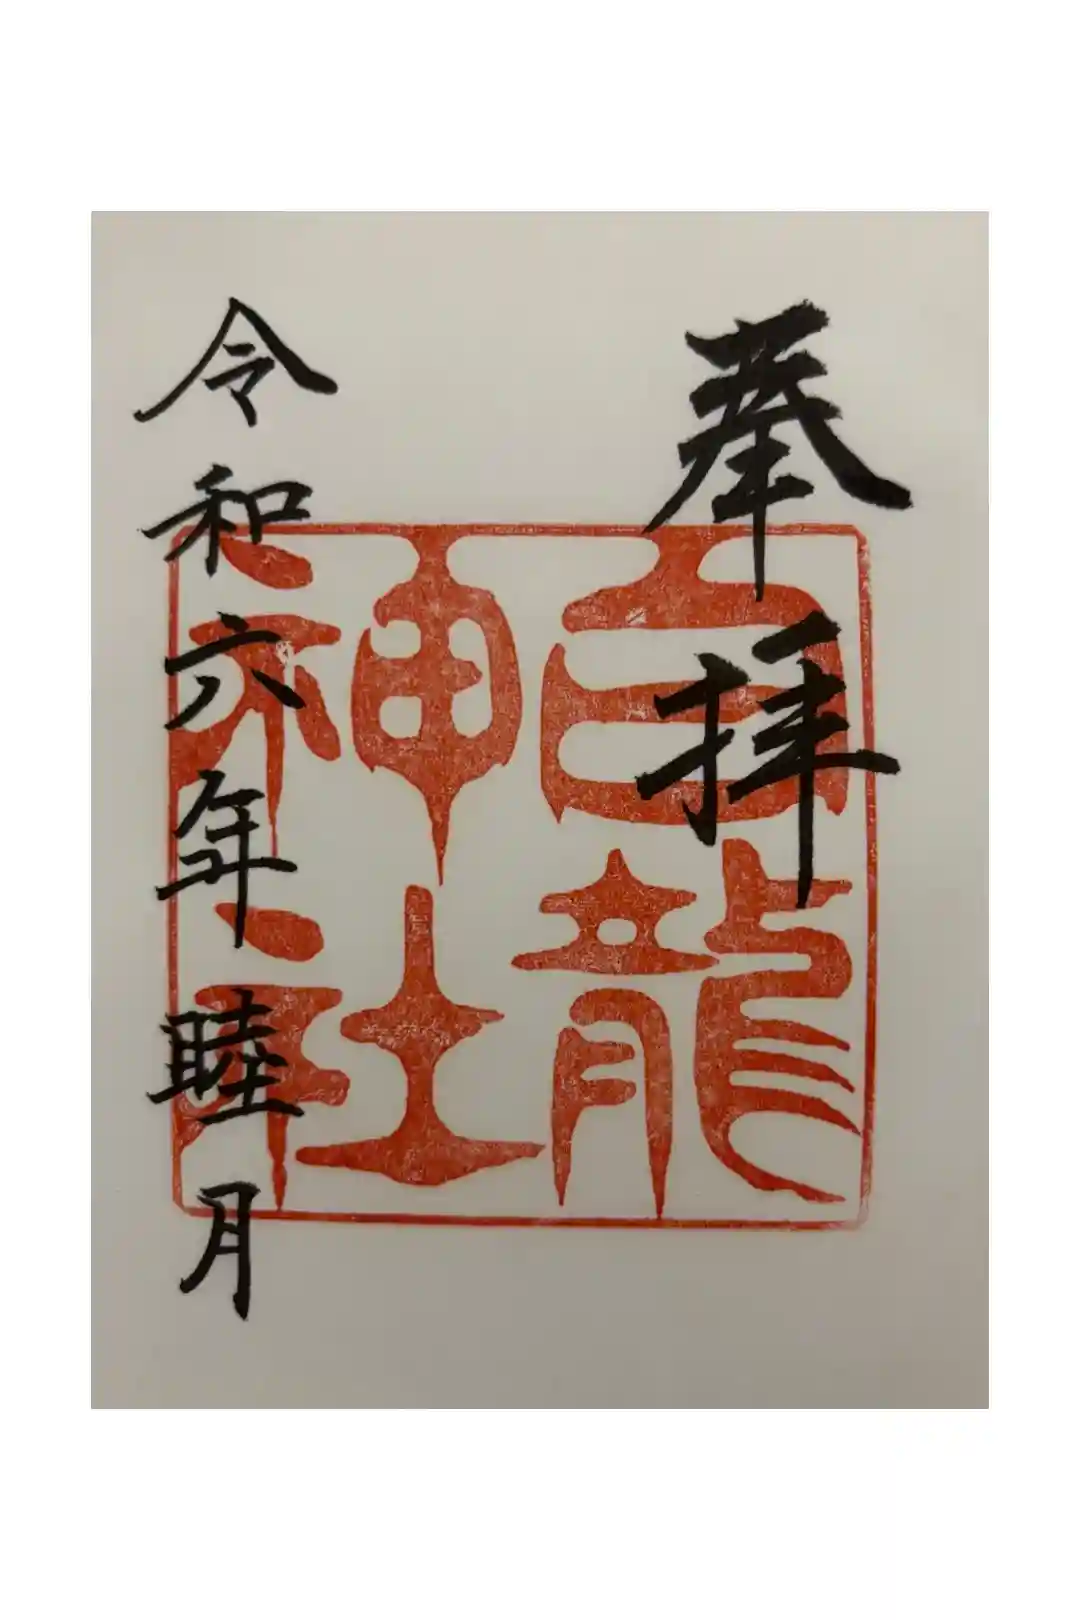 奉拝
白龍
神社
令和六年睦月